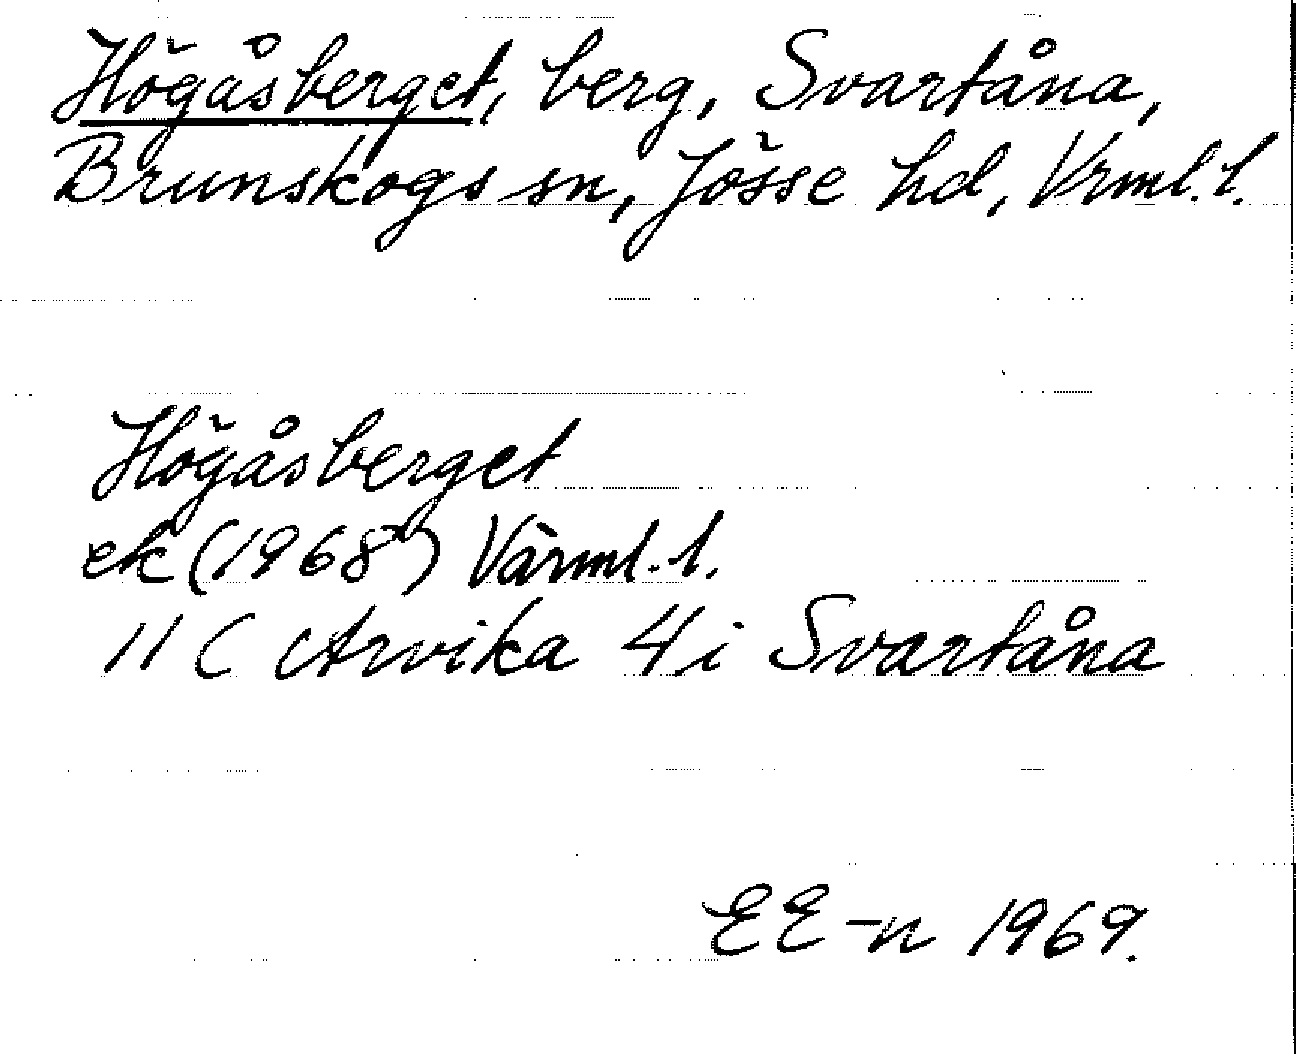 Högåsberget, berg, Svartåna,
Brunskogs sn, Jösse hd, Vrml. l.
Högåsberget
ek (1968) Värml. l.
11 C Arvika 4 i Svartåna
EE-n 1969.